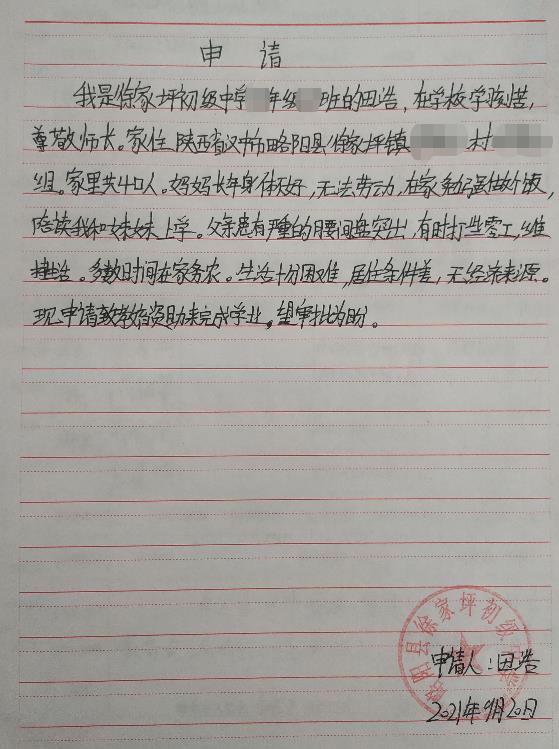 申 请
我是徐家坪初级中学年级班的田浩，在学校学习刻苦，
尊敬师长。家住陕西省汉中市略阳县徐家坪镇村
组。家里共4口人。妈妈长年身体不好，无法劳动，在家勉强做个饭，
陪读我和妹妹上学。父亲患有严重的腰间盘突出，有时打些零工，维
持生活。多数时间在家务农。生活十分困难，居住条件差，无经济来源。
现申请教育资助来完成学业。望审批为盼。
略阳县徐家坪初级中学
申请人：田浩
2021年9月20日